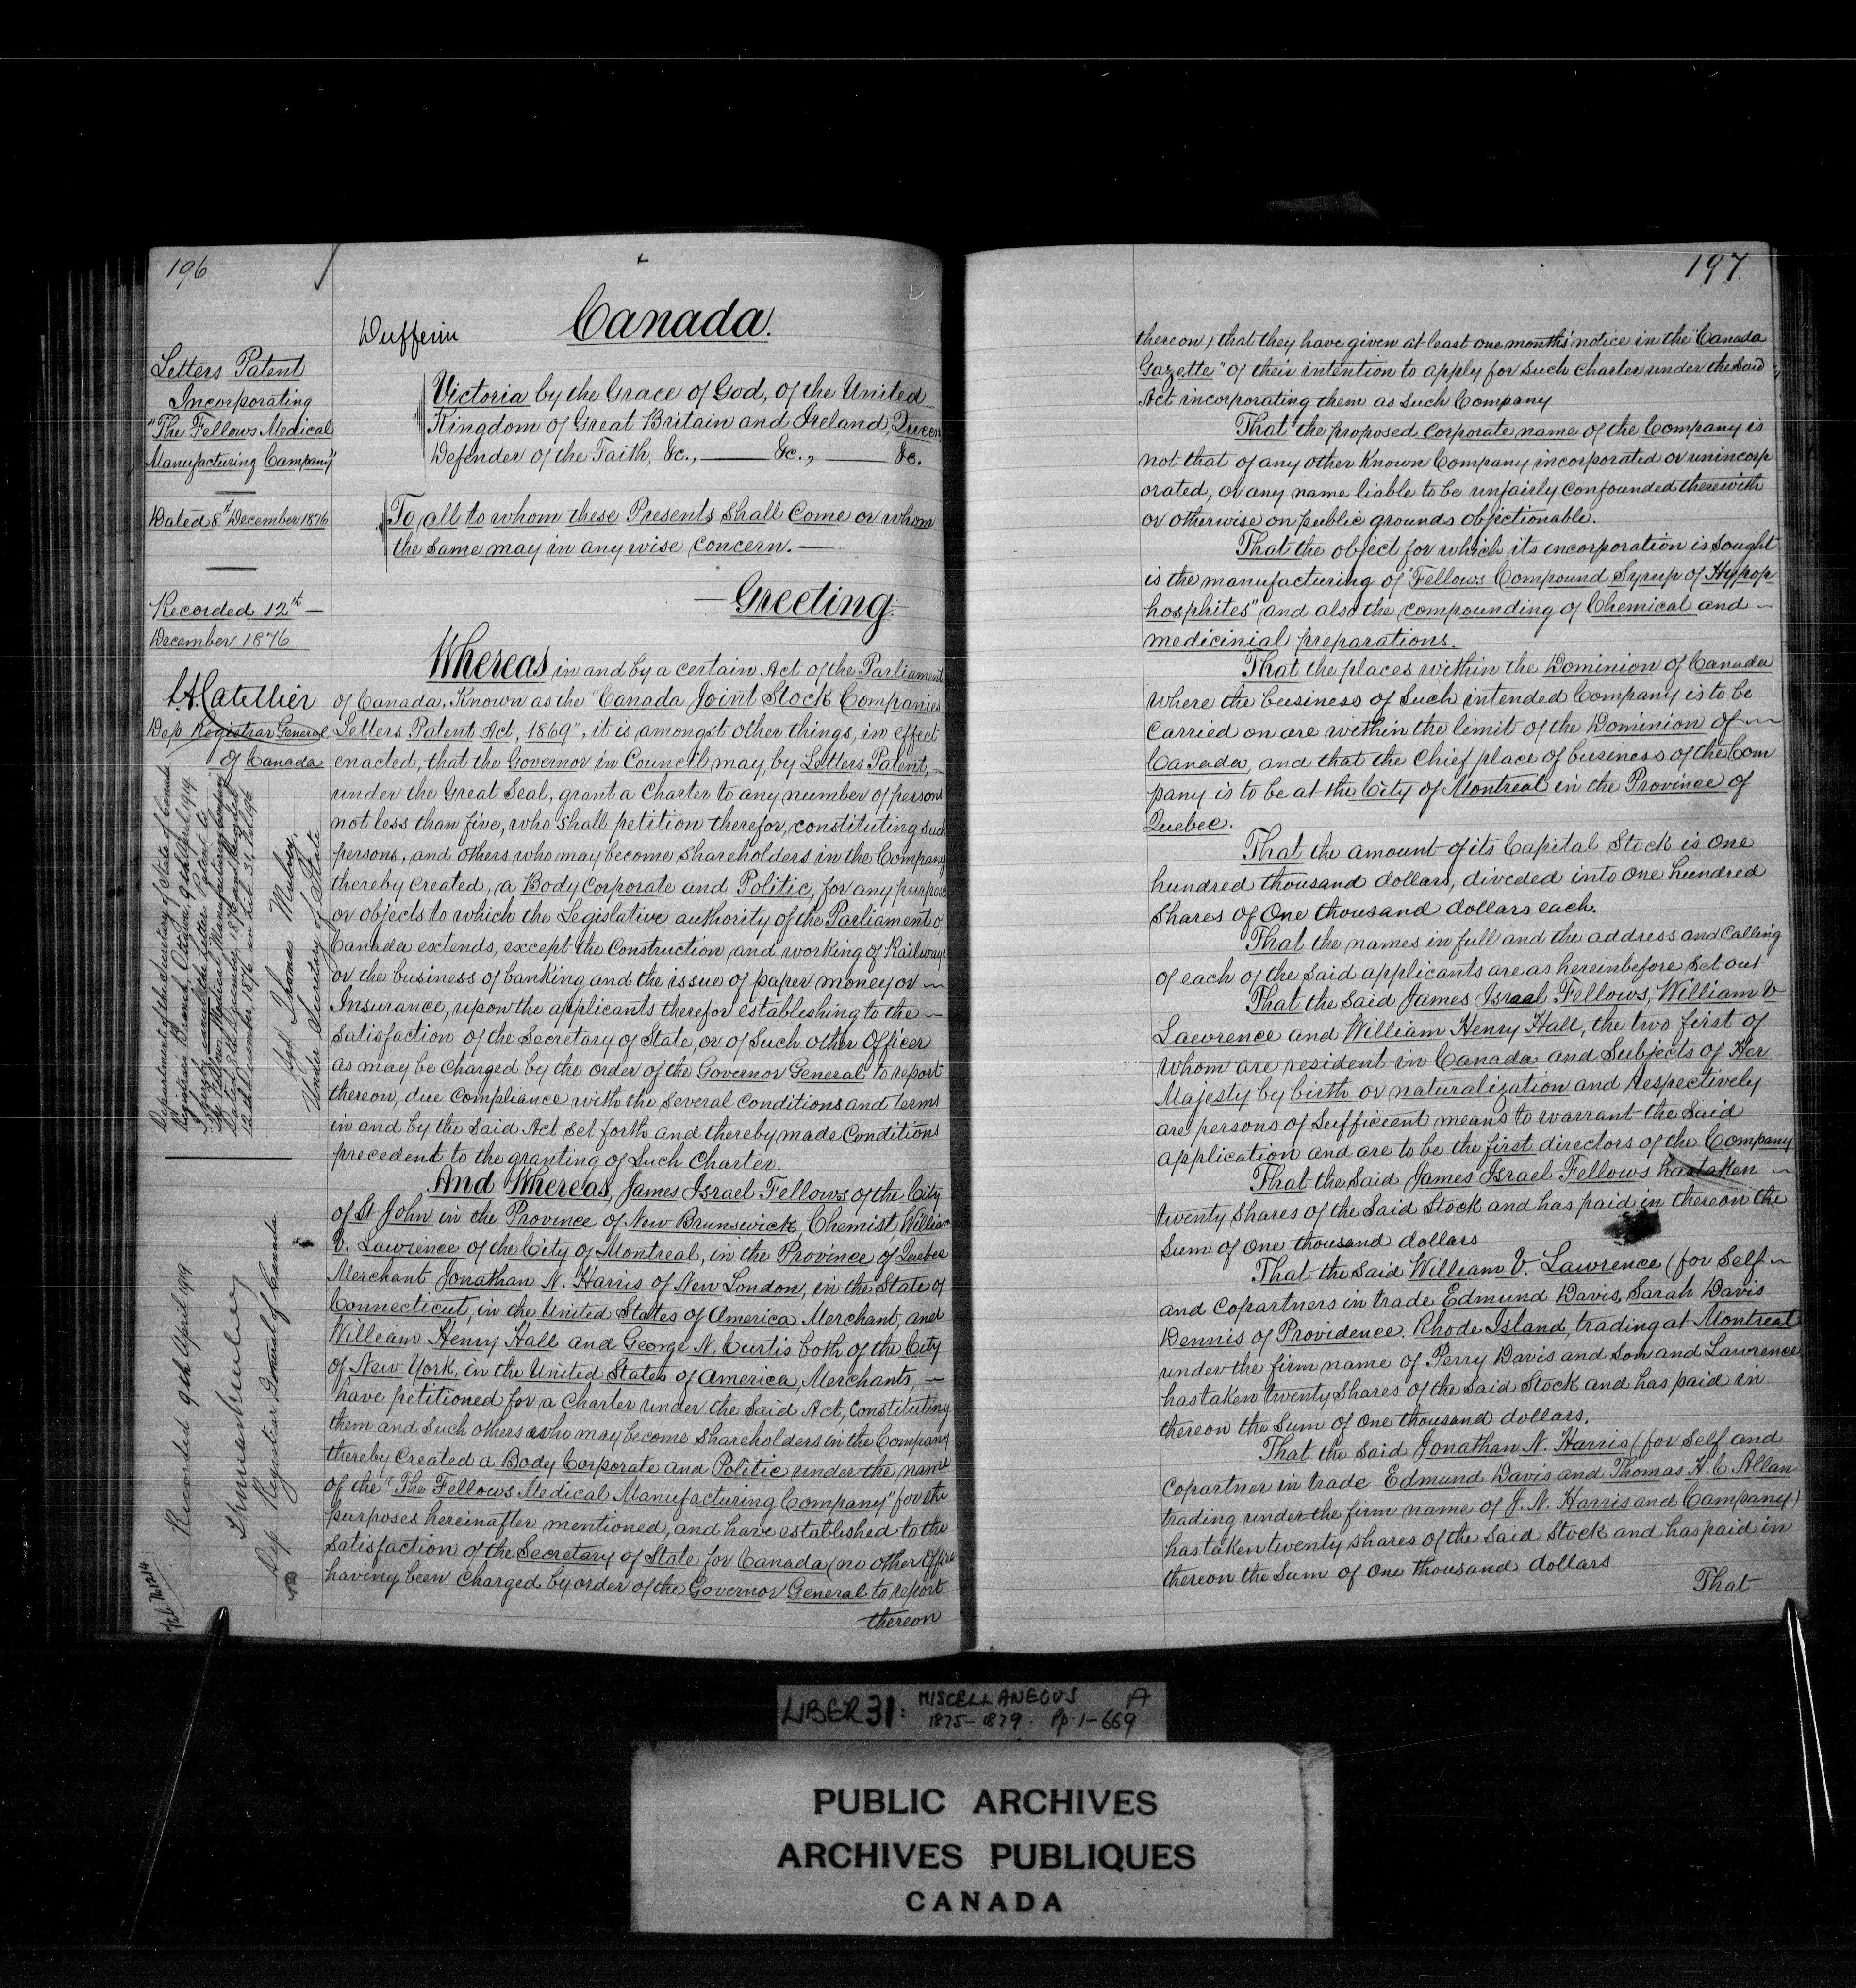 196
Letters Patent
Incorporating
"The Fellows Medical
Manufacturing Company"
Dated 8th December 1876
Recorded 12th
December 1876
L.A. Catellier
Dep Registrar General
of Canada
Department of the Secretary of State of Canada
Registrar's Branch, Ottawa, 9th April 1919
the Letters Patent to
The Fellows Medical Manufacturing Company
Dated 8th December, 1876 and Recorded
12th December, 1876 in Lib. 31, Fol. 196
Sgd Thomas Mulvey,
Under Secretary of State
Recorded 9th April 1919
Dep Registrar General of Canada.
Dufferin
Canada.
Victoria by the Grace of God, of the United
Kingdom of Great Britain and Ireland, Queen
Defender of the Faith, &c., — &c., — &c.
To all to whom these Presents shall Come or whom
the same may in any wise concern. —
— Greeting. —
Whereas in and by a certain Act of the Parliament
of Canada, Known as the "Canada Joint Stock Companies
Letters Patent Act, 1869", it is, amongst other things, in effect
enacted, that the Governor in Council may, by Letters Patent, —
under the Great Seal, grant a Charter to any number of persons
not less than five, who shall petition therefor, constituting such
persons, and others who may become shareholders in the Company
thereby created, a Body Corporate and Politic, for any purposes
or objects to which the Legislative authority of the Parliament of
Canada extends, except the Construction and working of Railways
or the business of banking and the issue of paper money or —
Insurance, upon the applicants therefor establishing to the —
satisfaction of the Secretary of State, or of such other Officer
as may be charged by the order of the Governor General to report
thereon, due compliance with the several conditions and terms
in and by the said Act set forth and thereby made Conditions
precedent to the granting of such Charter.
And Whereas, James Israel Fellows of the City
of St John in the Province of New Brunswick, Chemist, William
V. Lawrence of the City of Montreal, in the Province of Quebec
Merchant Jonathan N. Harris of New London, in the State of
Connecticut, in the United States of America Merchant, and
William Henry Hall and George N. Curtis both of the City
of New York, in the United States of America, Merchants, —
have petitioned for a Charter under the said Act, Constituting
them and such others who may become shareholders in the Company
thereby created a Body Corporate and Politic under the name
of the "The Fellows Medical Manufacturing Company" for the
purposes hereinafter mentioned, and have established to the
satisfaction of the Secretary of State for Canada (no other Officer
having been charged by order of the Governor General to report
thereon
197.
thereon) that they have given at least one months' notice in the "Canada
Gazette" of their intention to apply for such Charter under the said
Act incorporating them as such Company
That the proposed corporate name of the Company is
not that of any other Known Company incorporated or unincorp
orated, or any name liable to be unfairly confounded therewith
or otherwise on public grounds objectionable.
That the object for which its incorporation is sought
is the manufacturing of "Fellows Compound Syrup of Hypop-
hosphites" and also the compounding of Chemical and —
medicinial preparations.
That the places within the Dominion of Canada
where the business of such intended Company is to be
carried on are within the limit of the Dominion of —
Canada, and that the Chief place of business of the Com
pany is to be at the City of Montreal in the Province of
Quebec.
That the amount of its Capital Stock is One
hundred thousand dollars, diveded into One hundred
shares of One thousand dollars each.
That the names in full and the address and Calling
of each of the said applicants are as hereinbefore set out
That the said James Israel Fellows, William V
Lawrence and William Henry Hall, the two first of
whom are resident in Canada and subjects of Her
Majesty by birth or naturalization and respectively
are persons of sufficient means to warrant the said
application and are to be the first directors of the Company
That the said James Israel Fellows has taken —
twenty shares of the said Stock and has paid in thereon the
sum of one thousand dollars
That the said William V. Lawrence (for self —
and Copartners in trade Edmund Davis, Sarah Davis
Dennis of Providence, Rhode Island, trading at Montreal
under the firm name of Perry Davis and Son and Lawrence
has taken twenty shares of the said Stock and has paid in
thereon the sum of one thousand dollars.
That the said Jonathan N. Harris (for self and
Copartner in trade Edmund Davis and Thomas H. C Allan
trading under the firm name of J. N. Harris and Company)
has taken twenty shares of the said Stock and has paid in
thereon the sum of one thousand dollars
That
LIBER 31: MISCELLANEOUS A
1875-1879. Pp. 1-669
PUBLIC ARCHIVES
ARCHIVES PUBLIQUES
CANADA